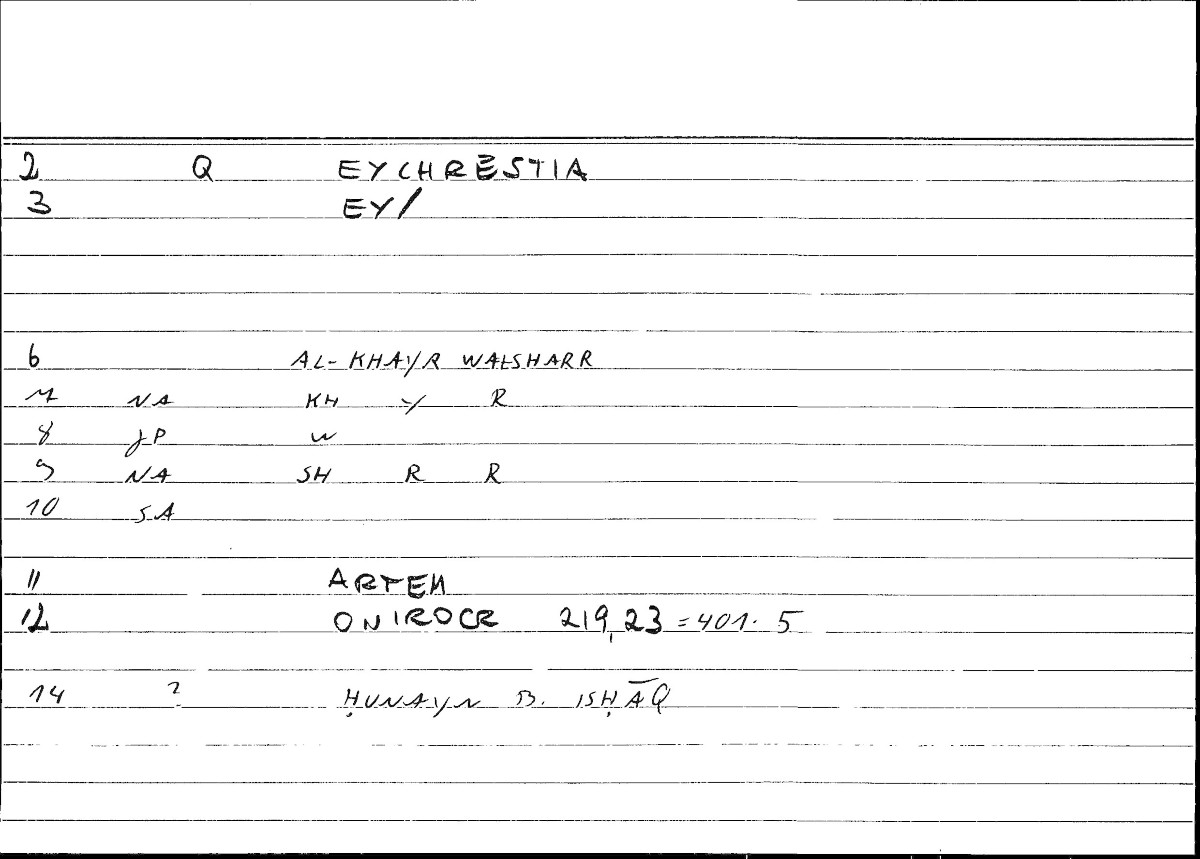 2 Q EYCHRĒSTIA
3 EY/
6 AL-KHAYR WALSHARR
7 NA KH Y R
8 JP W
9 NA SH R R
10 SA
11 ARTEM
12 ONIROCR 219,23 = 401.5
14 ? ḤUNAYN B. ISḤĀQ